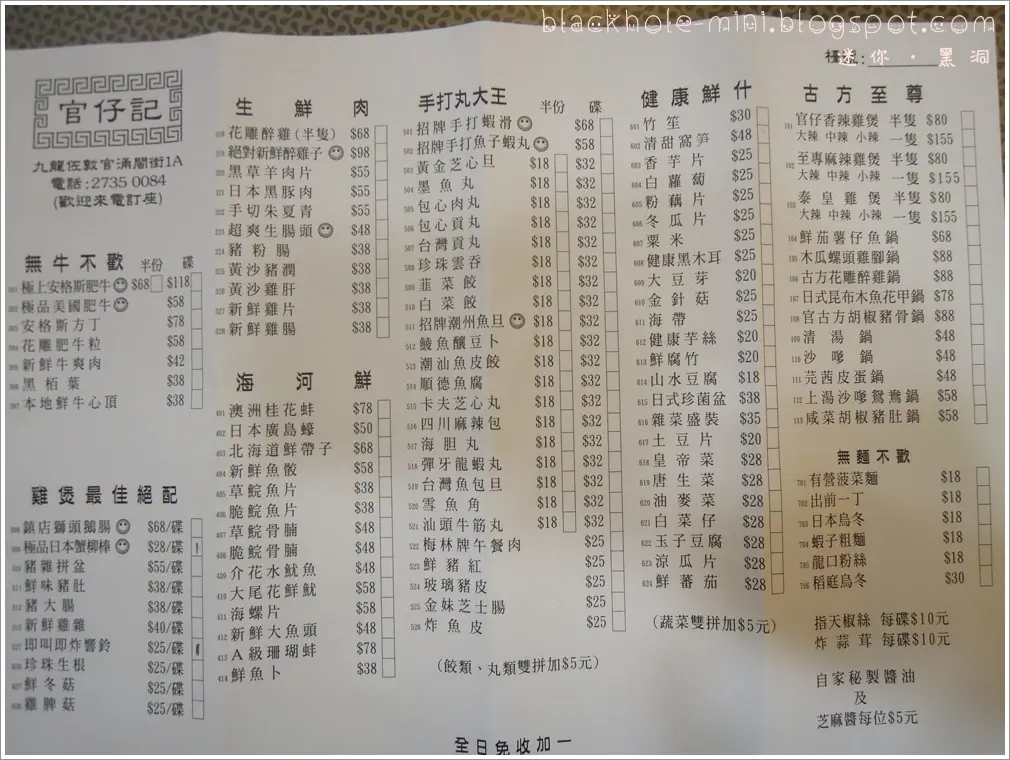 blackhole-mini.blogspot.com
迷你・黑洞
官仔記
九龍佐敦官涌閣街1A
電話:2735 0084
(歡迎來電訂座)
無牛不歡 半份 碟
極上安格斯肥牛 $68 $118
極品美國肥牛 $58
安格斯方丁 $78
花雕肥牛粒 $58
新鮮牛爽肉 $42
黑栢葉 $38
本地鮮牛心頂 $38
雞煲最佳絕配
鎮店獅頭鵝腸 $68/碟
極品日本蟹柳棒 $28/碟
豬雜拼盆 $55/碟
鮮味豬肚 $38/碟
豬大腸 $38/碟
新鮮雞雜 $40/碟
即叫即炸響鈴 $25/碟
珍珠生根 $25/碟
鮮冬菇 $25/碟
雞脾菇 $25/碟
生鮮肉
花雕醉雞(半隻) $68
絕對新鮮醉雞子 $98
黑草羊肉片 $55
日本黑豚肉 $55
手切朱夏青 $55
超爽生腸頭 $48
豬粉腸 $38
黃沙豬潤 $38
黃沙雞肝 $38
新鮮雞片 $38
新鮮雞腸 $38
海河鮮
401 澳洲桂花蚌 $78
402 日本廣島蠔 $50
403 北海道鮮帶子 $68
404 新鮮魚骰 $58
405 草鯇魚片 $38
406 脆鯇魚片 $38
407 草鯇骨腩 $48
408 脆鯇骨腩 $48
409 介花水魷魚 $48
410 大尾花鮮魷 $58
411 海螺片 $58
412 新鮮大魚頭 $48
413 A級珊瑚蚌 $78
414 鮮魚卜 $38
手打丸大王 半份 碟
501 招牌手打蝦滑 $68
502 招牌手打魚子蝦丸 $58
503 黃金芝心旦 $18 $32
504 墨魚丸 $18 $32
505 包心肉丸 $18 $32
506 包心貢丸 $18 $32
507 台灣貢丸 $18 $32
508 珍珠雲吞 $18 $32
509 韮菜餃 $18 $32
510 白菜餃 $18 $32
511 招牌潮州魚旦 $18 $32
512 鯪魚釀豆卜 $18 $32
513 潮汕魚皮餃 $18 $32
514 順德魚腐 $18 $32
515 卡夫芝心丸 $18 $32
516 四川麻辣包 $18 $32
517 海胆丸 $18 $32
518 彈牙龍蝦丸 $18 $32
519 台灣魚包旦 $18 $32
520 雪魚角 $18 $32
521 汕頭牛筋丸 $18 $32
522 梅林牌午餐肉 $25
523 鮮豬紅 $25
524 玻璃豬皮 $25
525 金妹芝士腸 $25
526 炸魚皮 $25
(餃類、丸類雙拼加$5元)
健康鮮什
601 竹笙 $30
602 清甜窩笋 $48
603 香芋片 $25
604 白蘿蔔 $25
605 粉藕片 $25
606 冬瓜片 $25
607 粟米 $25
608 健康黑木耳 $25
609 大豆芽 $20
610 金針菇 $25
611 海帶 $25
612 健康芋絲 $20
613 鮮腐竹 $20
614 山水豆腐 $18
615 日式珍菌盆 $38
616 雜菜盛裝 $35
617 土豆片 $20
618 皇帝菜 $28
619 唐生菜 $28
620 油麥菜 $28
621 白菜仔 $28
622 玉子豆腐 $28
623 涼瓜片 $28
624 鮮蕃茄 $28
(蔬菜雙拼加$5元)
古方至尊
101 官仔香辣雞煲 半隻 $80
大辣 中辣 小辣 一隻 $155
102 至專麻辣雞煲 半隻 $80
大辣 中辣 小辣 一隻 $155
103 泰皇雞煲 半隻 $80
大辣 中辣 小辣 一隻 $155
104 鮮茄薯仔魚鍋 $68
105 木瓜螺頭雞腳鍋 $88
106 古方花雕醉雞鍋 $88
107 日式昆布木魚花甲鍋 $78
108 官古方胡椒豬骨鍋 $88
109 清湯鍋 $48
110 沙嗲鍋 $48
111 芫茜皮蛋鍋 $48
112 上湯沙嗲鴛鴦鍋 $58
113 咸菜胡椒豬肚鍋 $58
無麵不歡
701 有營菠菜麵 $18
702 出前一丁 $18
703 日本烏冬 $18
704 蝦子粗麵 $18
705 龍口粉絲 $18
706 稻庭烏冬 $30
指天椒絲 每碟$10元
炸蒜茸 每碟$10元
自家秘製醬油
及
芝麻醬每位$5元
全日免收加一